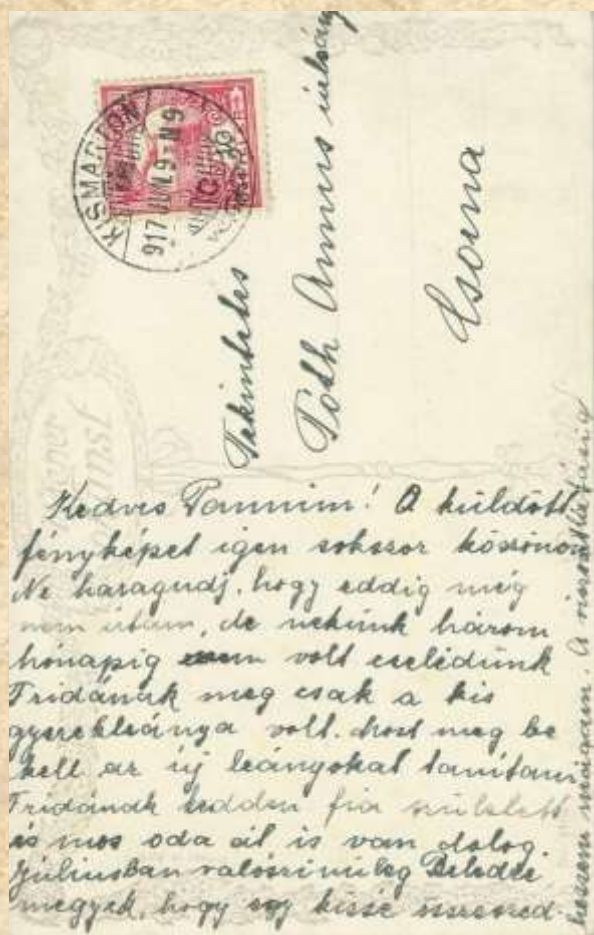 KISMARTON
917 JUN. 19 - N 9
Tekintetes
Tóth Annus
Csorna
Kedves Pannim! A küldött
fényképet igen sokszor köszönöm
Ne haragudj, hogy eddig még
nem írtam, de nekünk három
hónapig nem volt cselédünk
Fridának meg csak a kis
gyerekleánya volt. Most meg be
kell az új leányokat tanítani
Fridának kedden fia született
és mos oda át is van dolog
Júliusban valószinüleg
megyek, hogy egy kissé összeszed-
hessem magam. A viszontlátásig